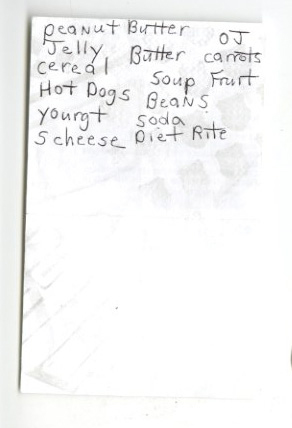 peanut Butter OJ
Jelly Butter carrots
cereal Soup Fruit
Hot Dogs Beans
yourgt soda
5 cheese Diet Rite